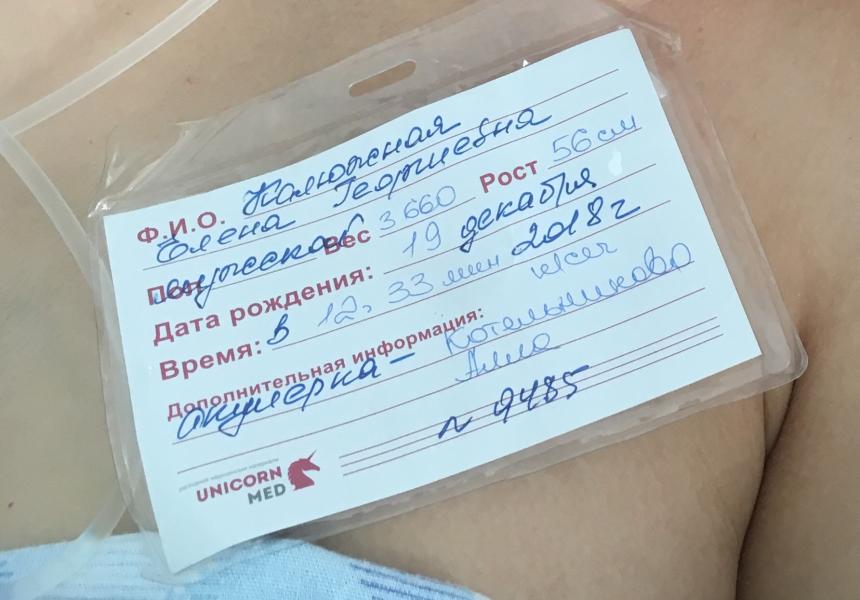 Ф.И.О. Калюжная
Елена Георгиевна
Пол мужской Вес 3660 Рост 56 см
Дата рождения: 19 декабря
Время: В 12, 33 мин 2018 г
Дополнительная информация:
акушерка – Котельникова
Алла
N 9485
UNICORN
MED